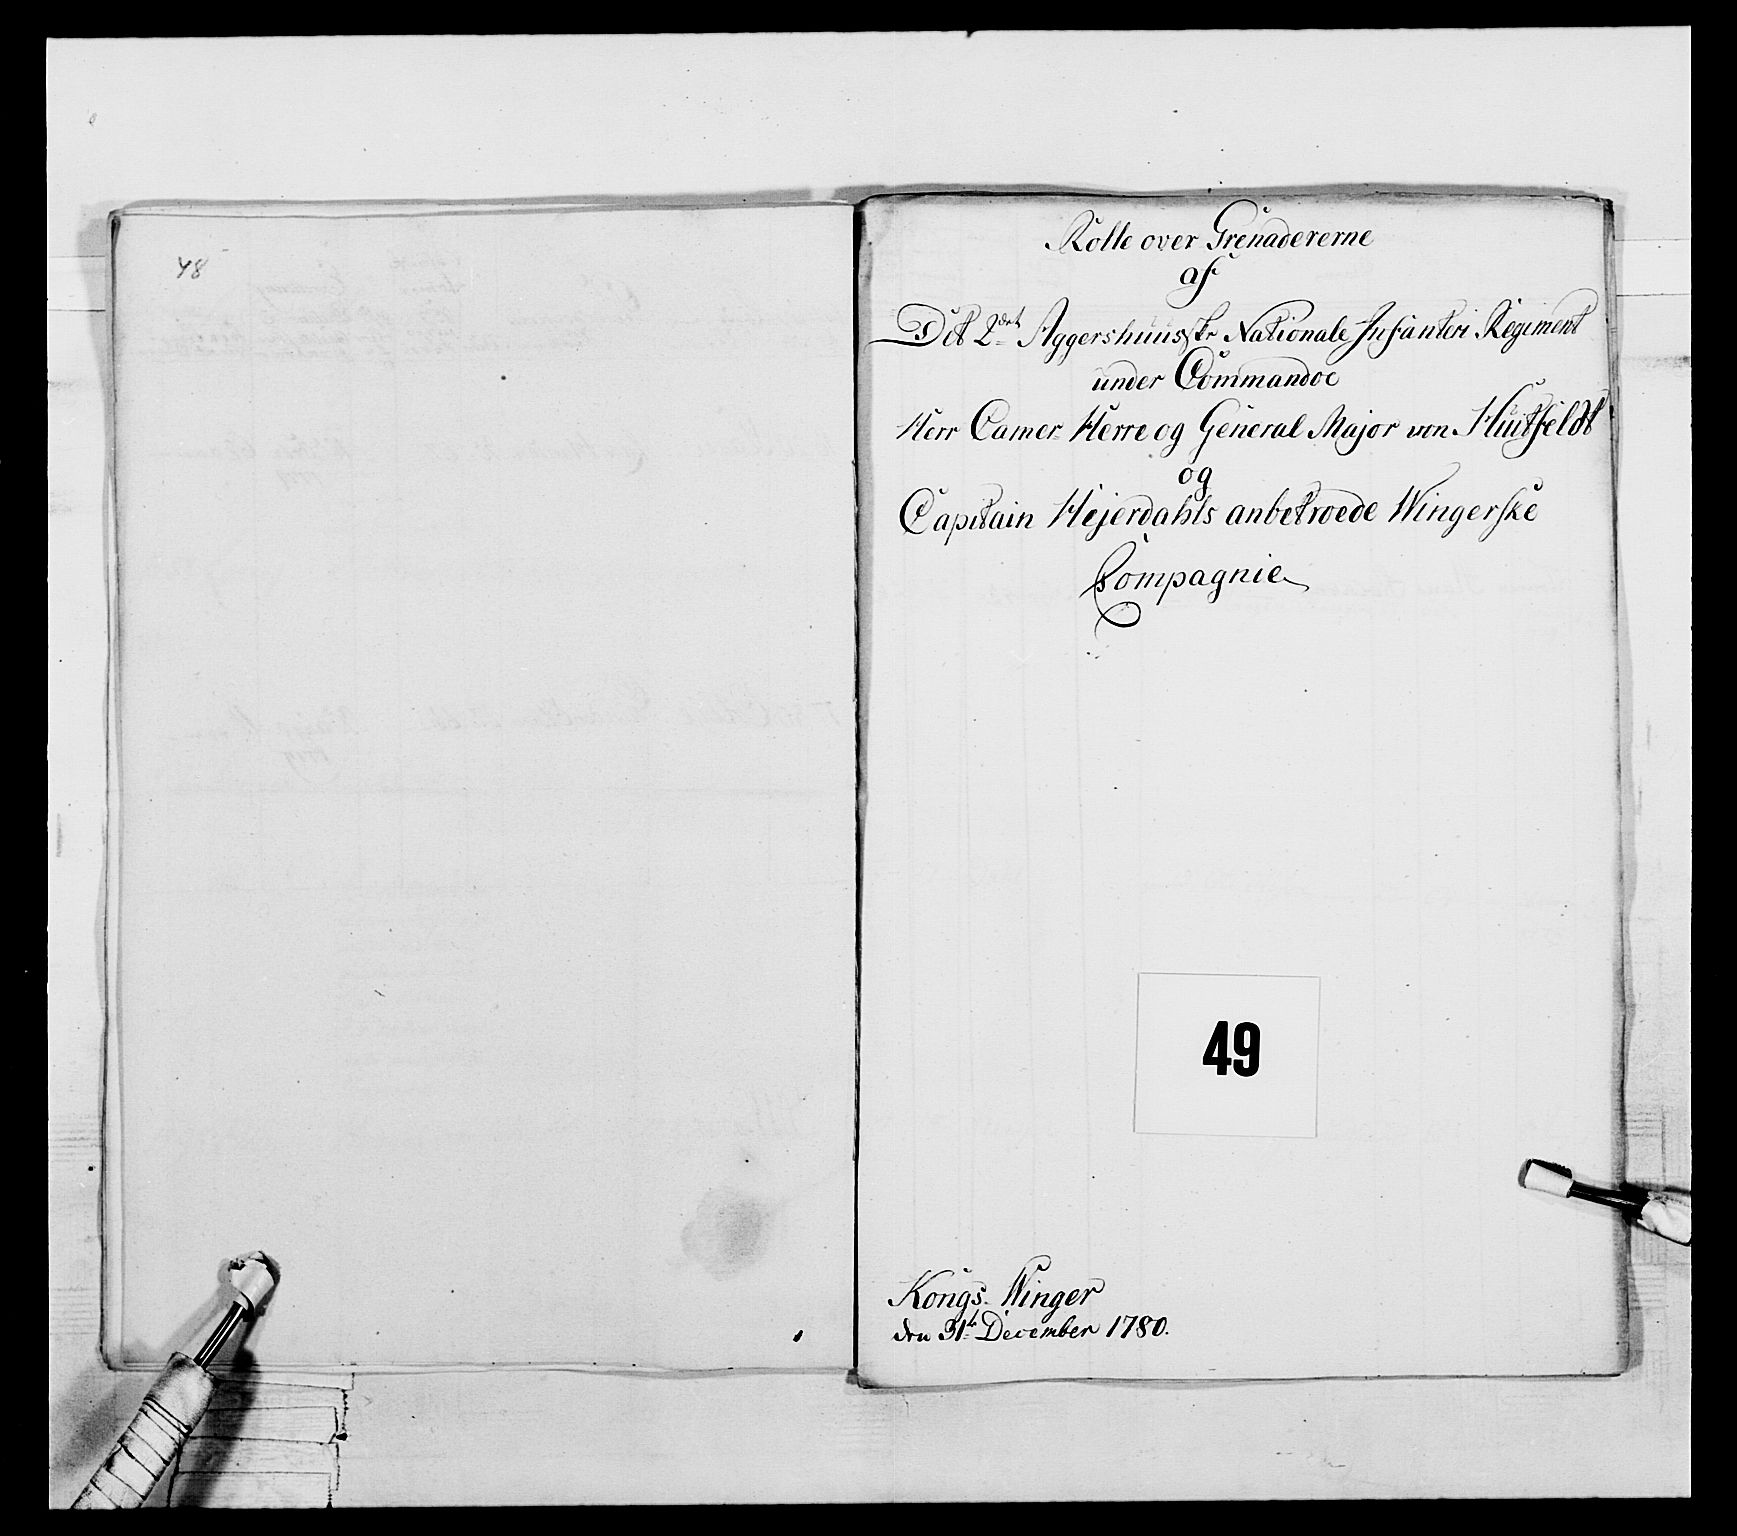 48
Rolle over Grenadererne
af
Det 2det Aggershuusske Nationale Infanteri Regiment
under Commandoe
Herr Camer-Herre og General Major von Huitfeldt
og
Capitain Hejerdahls anbetroede Wingerske
Compagnie
49
Kongs-Winger
den 31te December 1780.